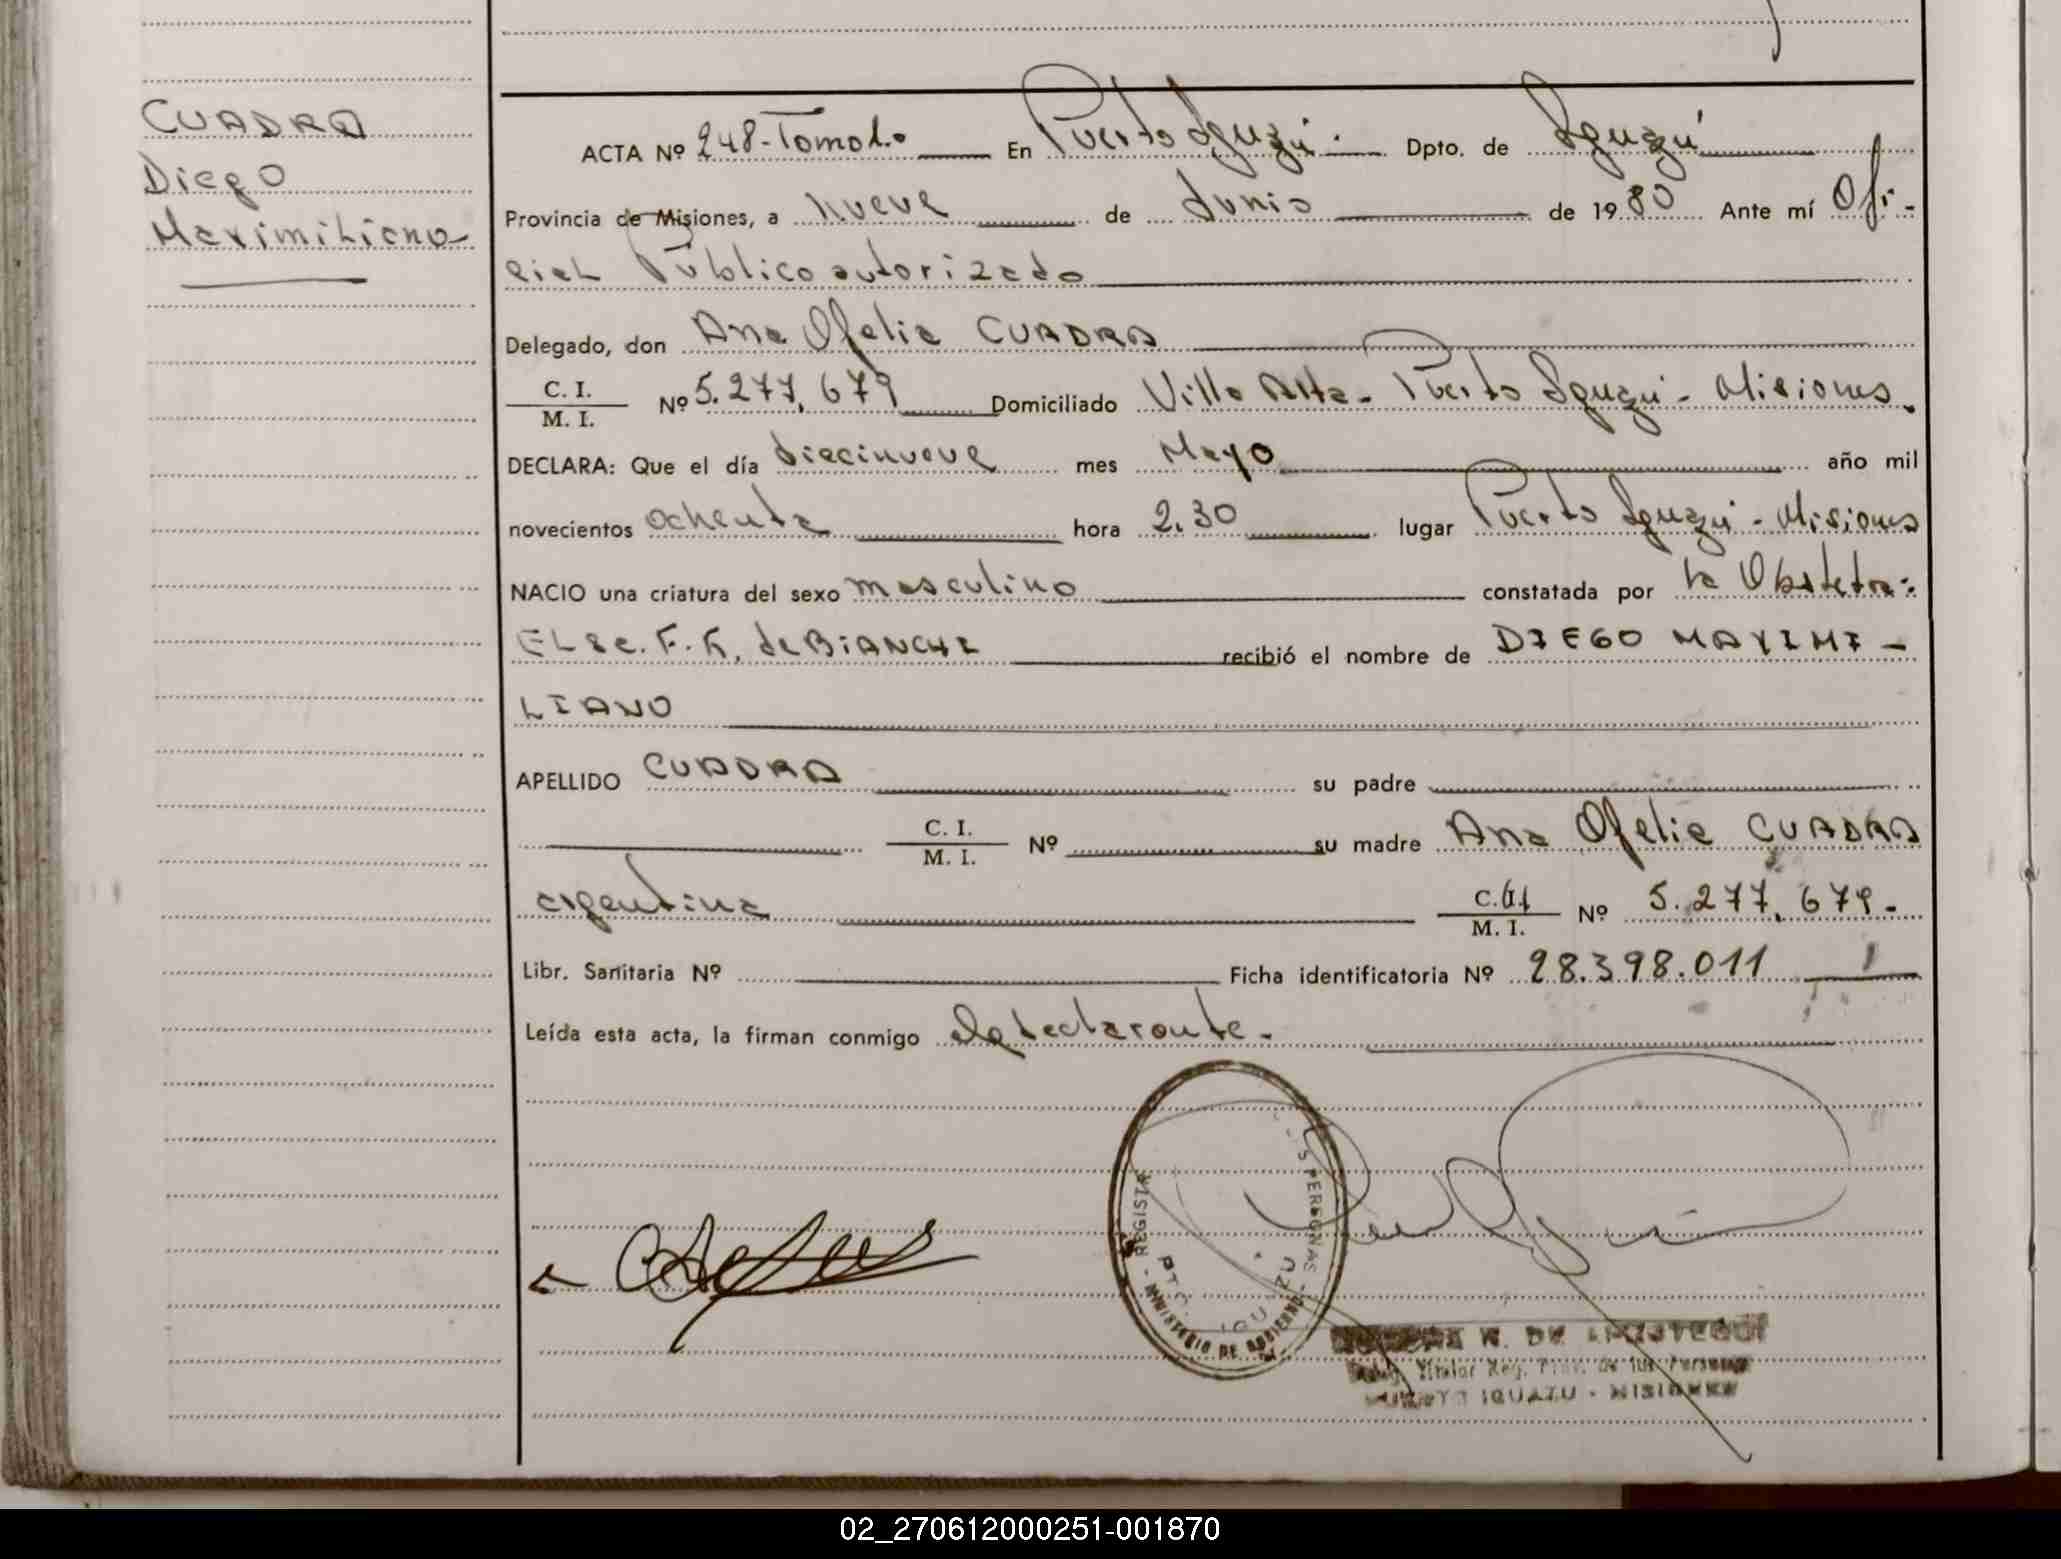 CUADRA
Diego
Maximiliano
ACTA Nº 248-Tomo1º En Puerto Iguazú. Dpto. de Iguazú
Provincia de Misiones, a nueve de Junio de 1980 Ante mí Ofi-
cial Público autorizado
Delegado, don Ana Ofelia CUADRA
C. I.
M. I. Nº 5.277.679 Domiciliado Villa Alta- Puerto Iguazú- Misiones.
DECLARA: Que el día diecinueve mes Mayo año mil
novecientos ochenta hora 2.30 lugar Puerto Iguazú - Misiones
NACIO una criatura del sexo masculino constatada por la Obstetra:
Elsa. F. K. de BIANCHI recibió el nombre de DIEGO MAXIMI-
LIANO
APELLIDO CUADRA su padre
C. I.
M. I. Nº su madre Ana Ofelia CUADRA
argentina C. I.
M. I. Nº 5.277.679.-
Libr. Sanitaria Nº Ficha identificatoria Nº 28.398.011
Leída esta acta, la firman conmigo la declarante.
PERSONAS
PTO. IGUAZU
MINISTERIO DE GOBIERNO
Titular Reg. Prov. de las Personas
PUERTO IGUAZU - MISIONES
02_270612000251-001870